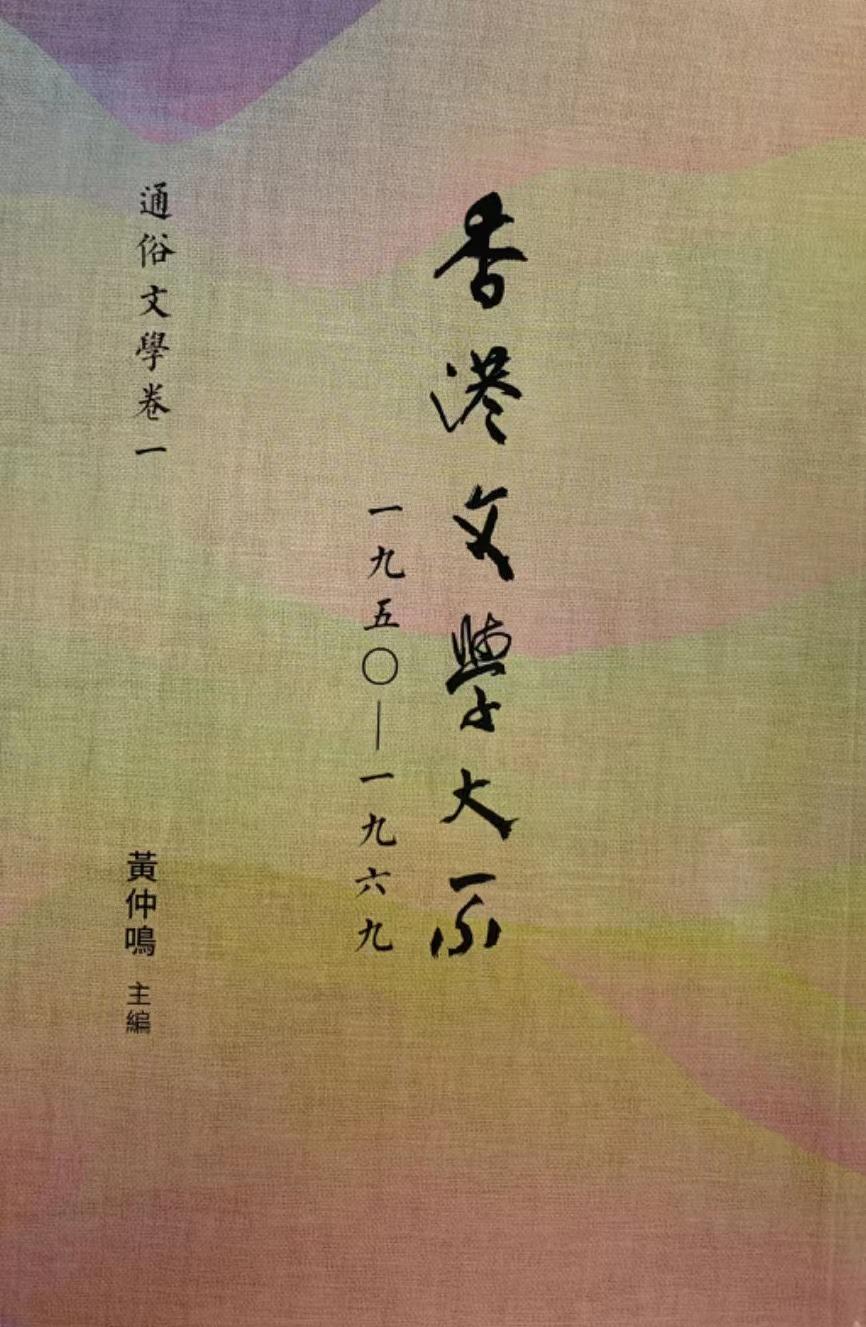 香港文學大系
一九五〇—一九六九
通俗文學卷一
黃仲鳴 主編